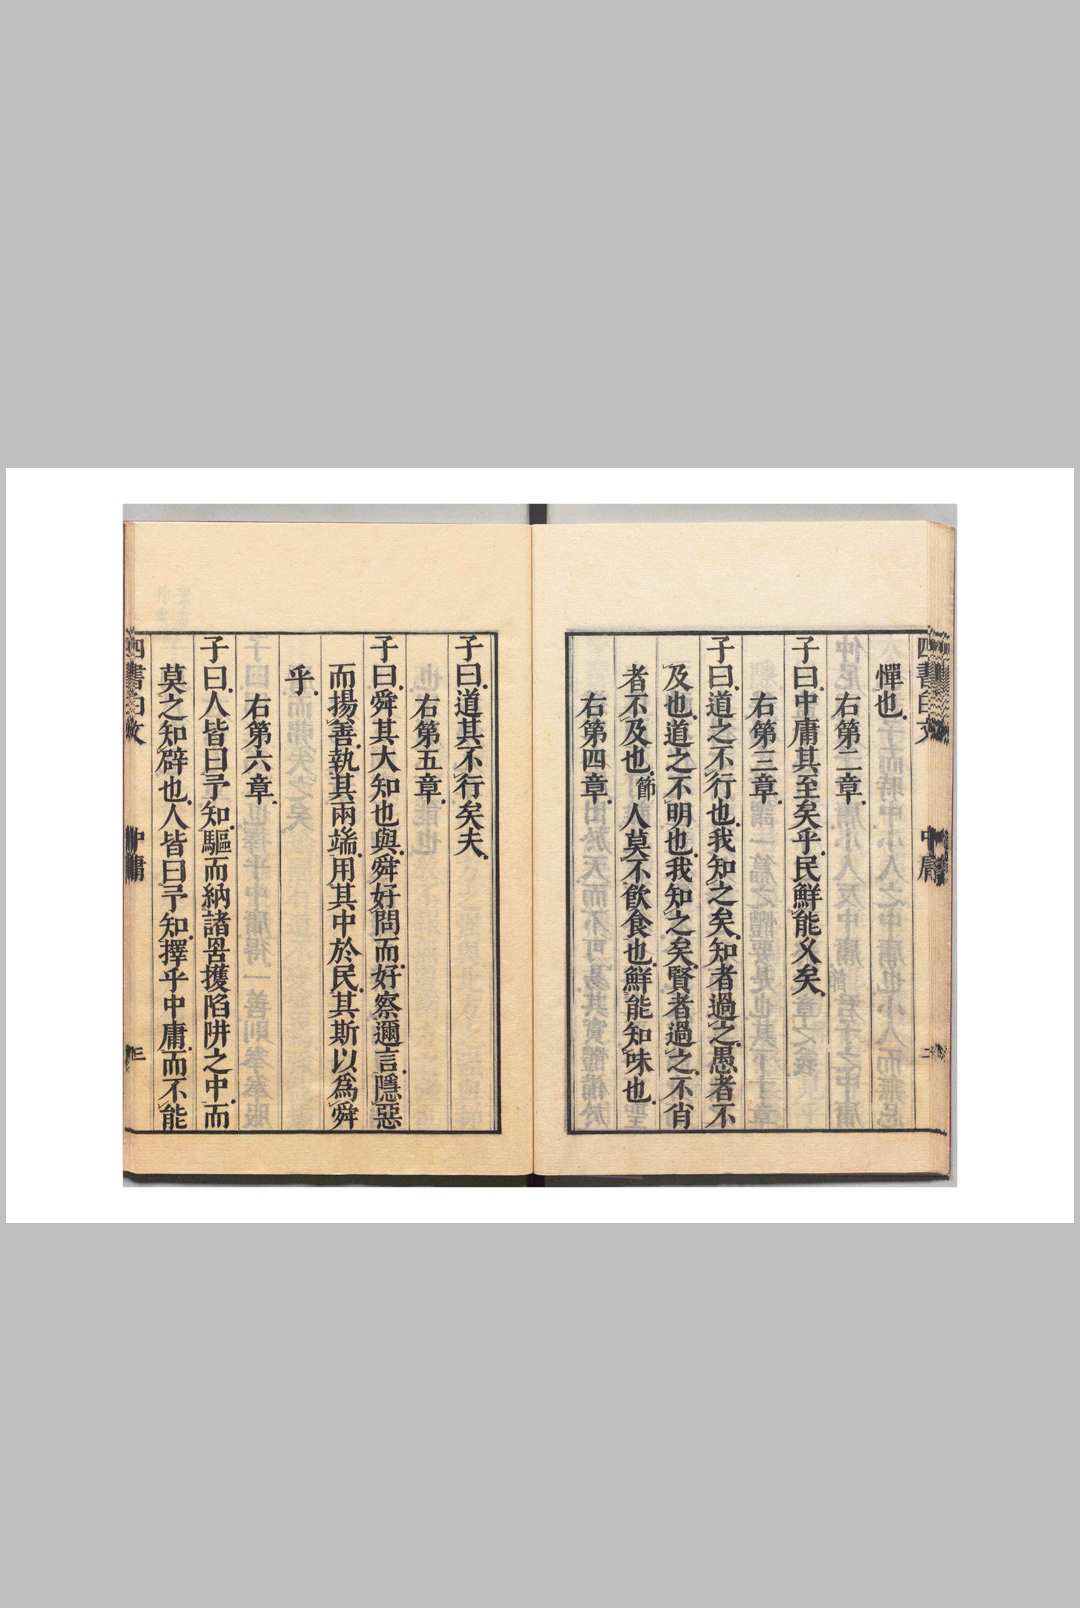 四書白文 中庸 二
憚也。
右第二章。
子曰。中庸其至矣乎。民鮮能乆矣。
右第三章。
子曰。道之不行也。我知之矣。知者過之。愚者不
及也。道之不明也。我知之矣。賢者過之。不肖
者不及也。節人莫不飲食也。鮮能知味也。
右第四章。
子曰。道其不行矣夫。
右第五章。
子曰。舜其大知也與。舜好問而。好察邇言。隱惡
而揚善。執其兩端。用其中於民。其斯以爲舜
乎。
右第六章。
子曰。人皆曰予知。驅而納諸罟擭陷阱之中。而
莫之知辟也。人皆曰予知。擇乎中庸。而不能
四書白文 中庸 三